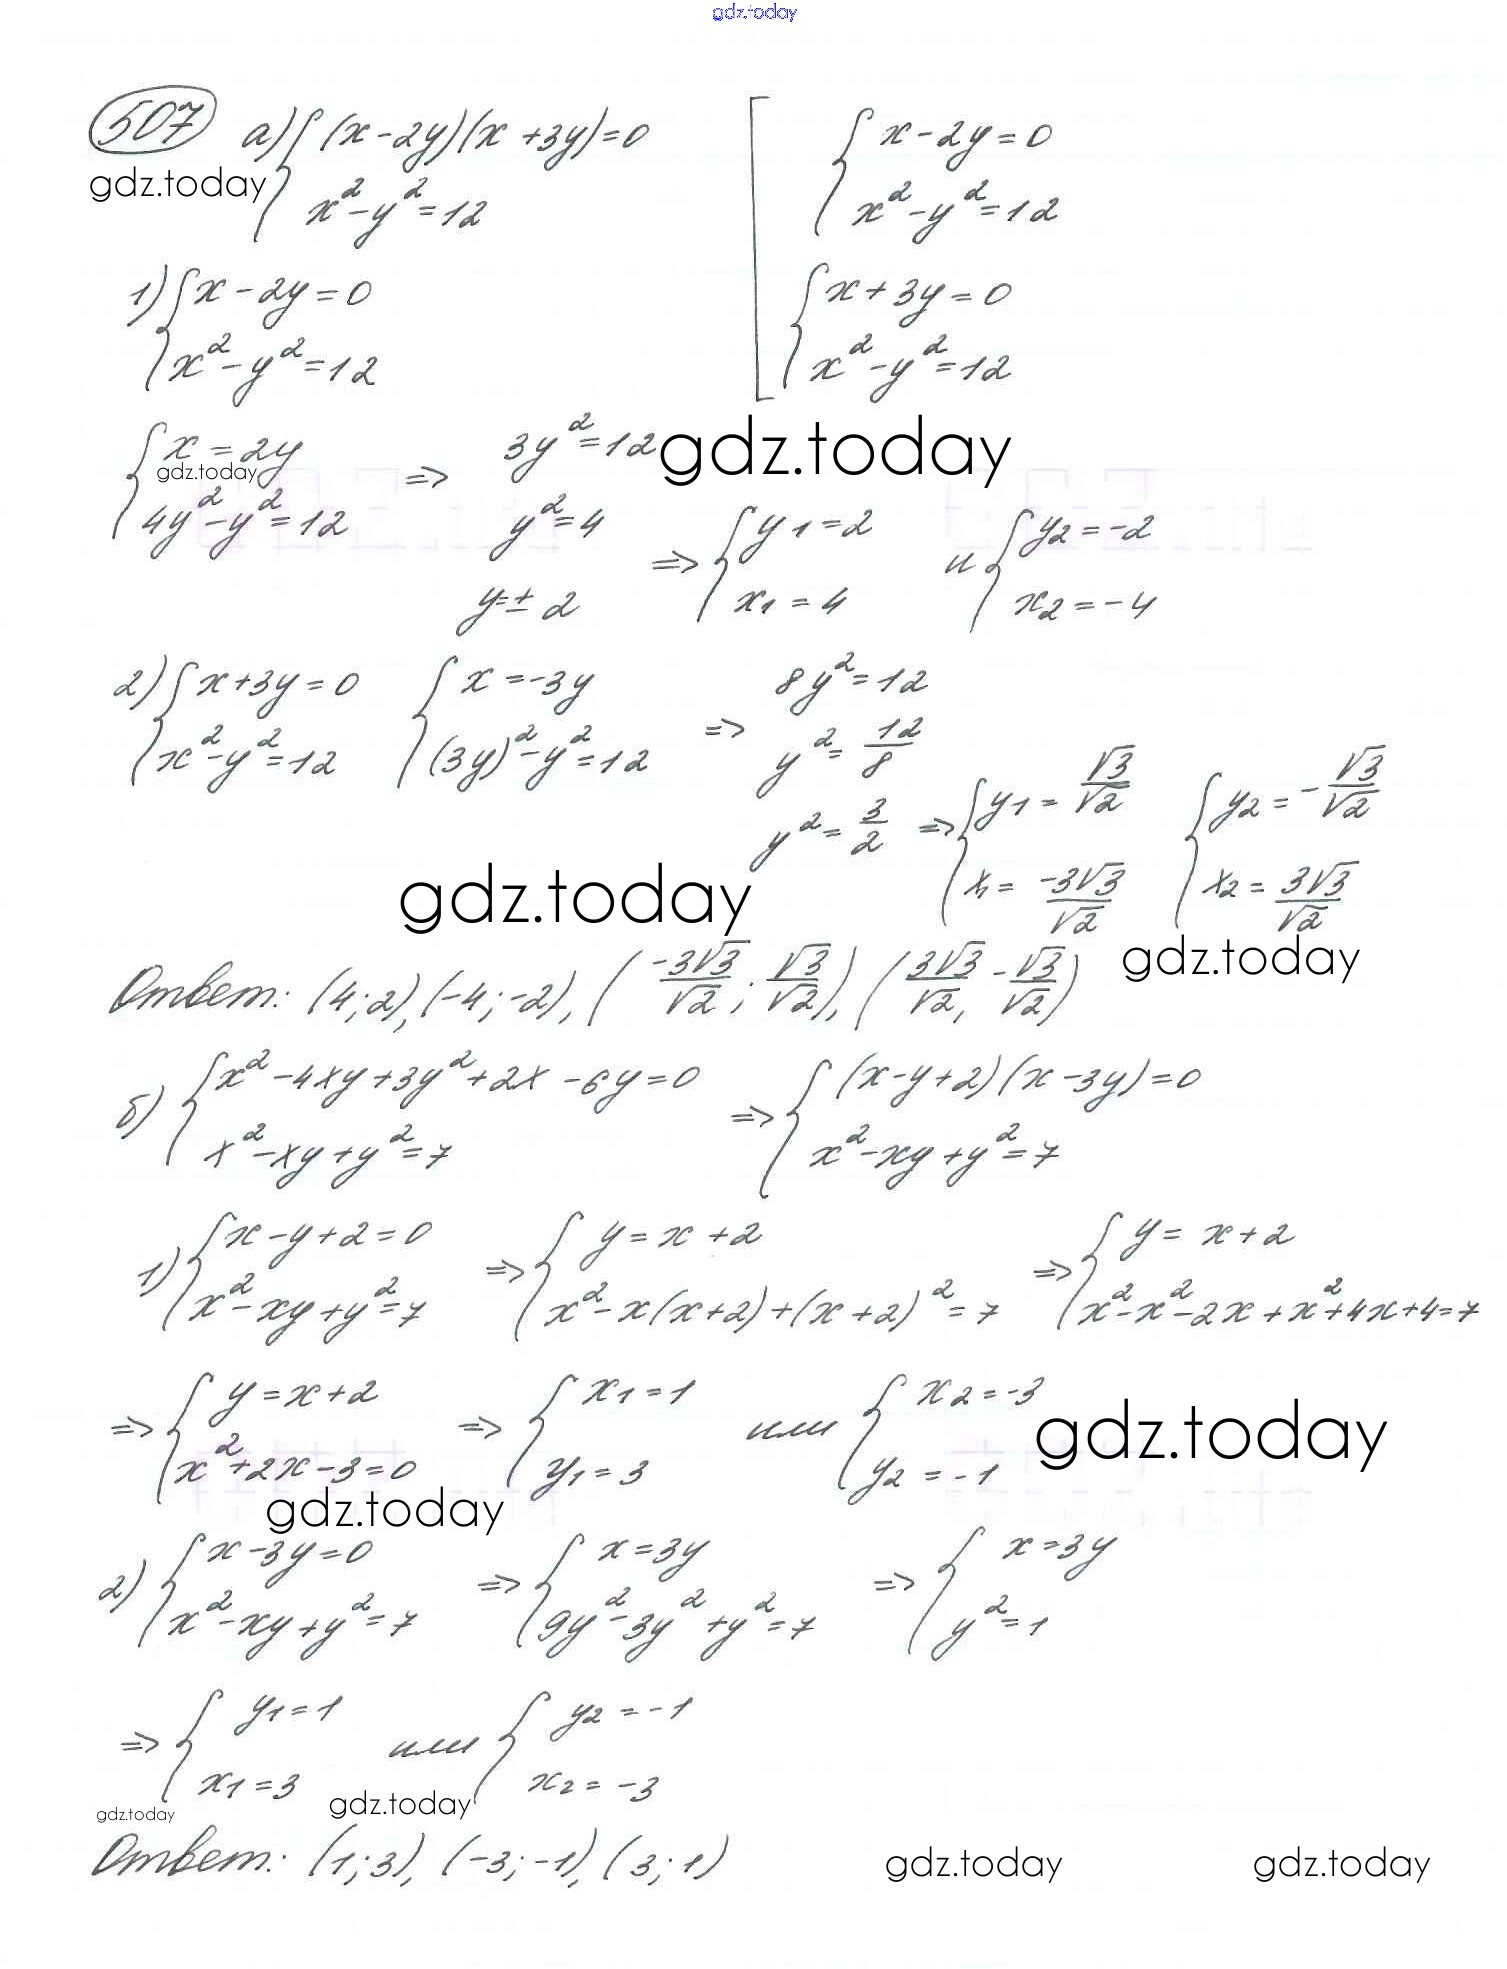 gdz.today
507 а) { (x-2y)(x+3y)=0
x²-y²=12
[ { x-2y=0
x²-y²=12
{ x+3y=0
x²-y²=12
gdz.today
1) { x-2y=0
x²-y²=12
{ x=2y
4y²-y²=12
gdz.today
=> 3y²=12
y²=4
y=±2
gdz.today
=> { y1=2
x1=4
и { y2=-2
x2=-4
2) { x+3y=0
x²-y²=12
{ x=-3y
(3y)²-y²=12
=> 8y²=12
y²=12/8
y²=3/2
=> { y1=√3/√2
x1=-3√3/√2
{ y2=-√3/√2
x2=3√3/√2
gdz.today
gdz.today
Ответ: (4;2), (-4;-2), (-3√3/√2; √3/√2), (3√3/√2, -√3/√2)
б) { x²-4xy+3y²+2x-6y=0
x²-xy+y²=7
=> { (x-y+2)(x-3y)=0
x²-xy+y²=7
1) { x-y+2=0
x²-xy+y²=7
=> { y=x+2
x²-x(x+2)+(x+2)²=7
=> { y=x+2
x²-x²-2x+x²+4x+4=7
=> { y=x+2
x²+2x-3=0
=> { x1=1
y1=3
или { x2=-3
y2=-1
gdz.today
gdz.today
2) { x-3y=0
x²-xy+y²=7
=> { x=3y
9y²-3y²+y²=7
=> { x=3y
y²=1
=> { y1=1
x1=3
или { y2=-1
x2=-3
gdz.today
gdz.today
Ответ: (1;3), (-3;-1), (3;1)
gdz.today
gdz.today